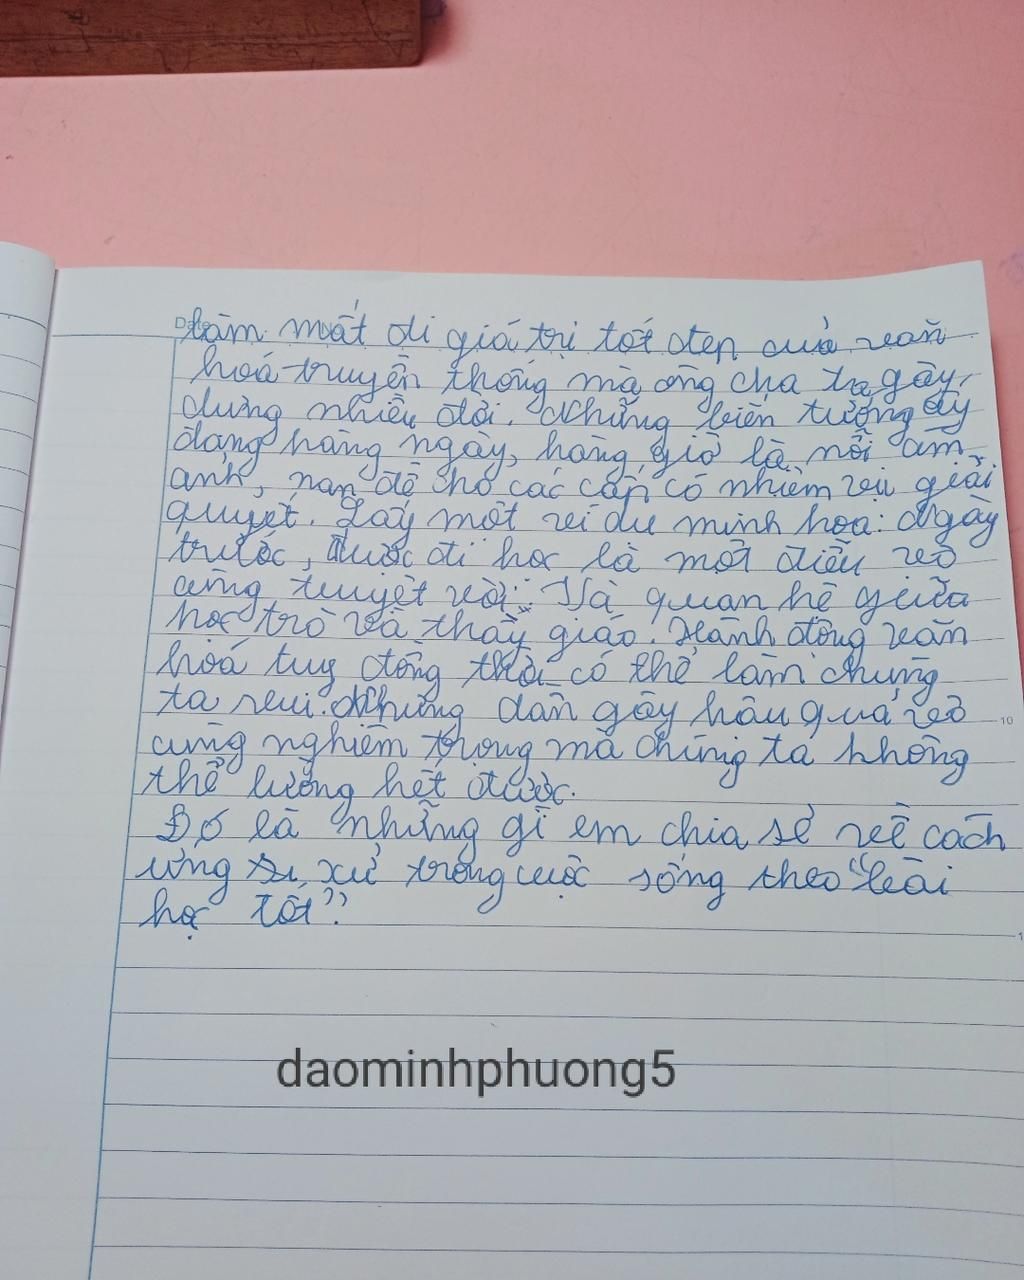 làm mất đi giá trị tốt đẹp của văn
hoá truyền thống mà ông cha ta gây
dựng nhiều đời. Những biến tướng ấy
đang hàng ngày, hàng giờ là nỗi ám
ảnh, nan đề cho các cấp có nhiệm vụ giải
quyết. Lấy một ví dụ minh hoạ: Ngày
trước, được đi học là một điều vô
cùng tuyệt vời. Và quan hệ giữa
học trò và thầy giáo. Hành động văn
hoá tuy đồng thời có thể làm chúng
ta vui. Nhưng dần gây hậu quả vô
cùng nghiêm trọng mà chúng ta không
thể lường hết được.
Đó là những gì em chia sẻ về cách
ứng xử trong cuộc sống theo "bài
học tốt".
daominhphuong5